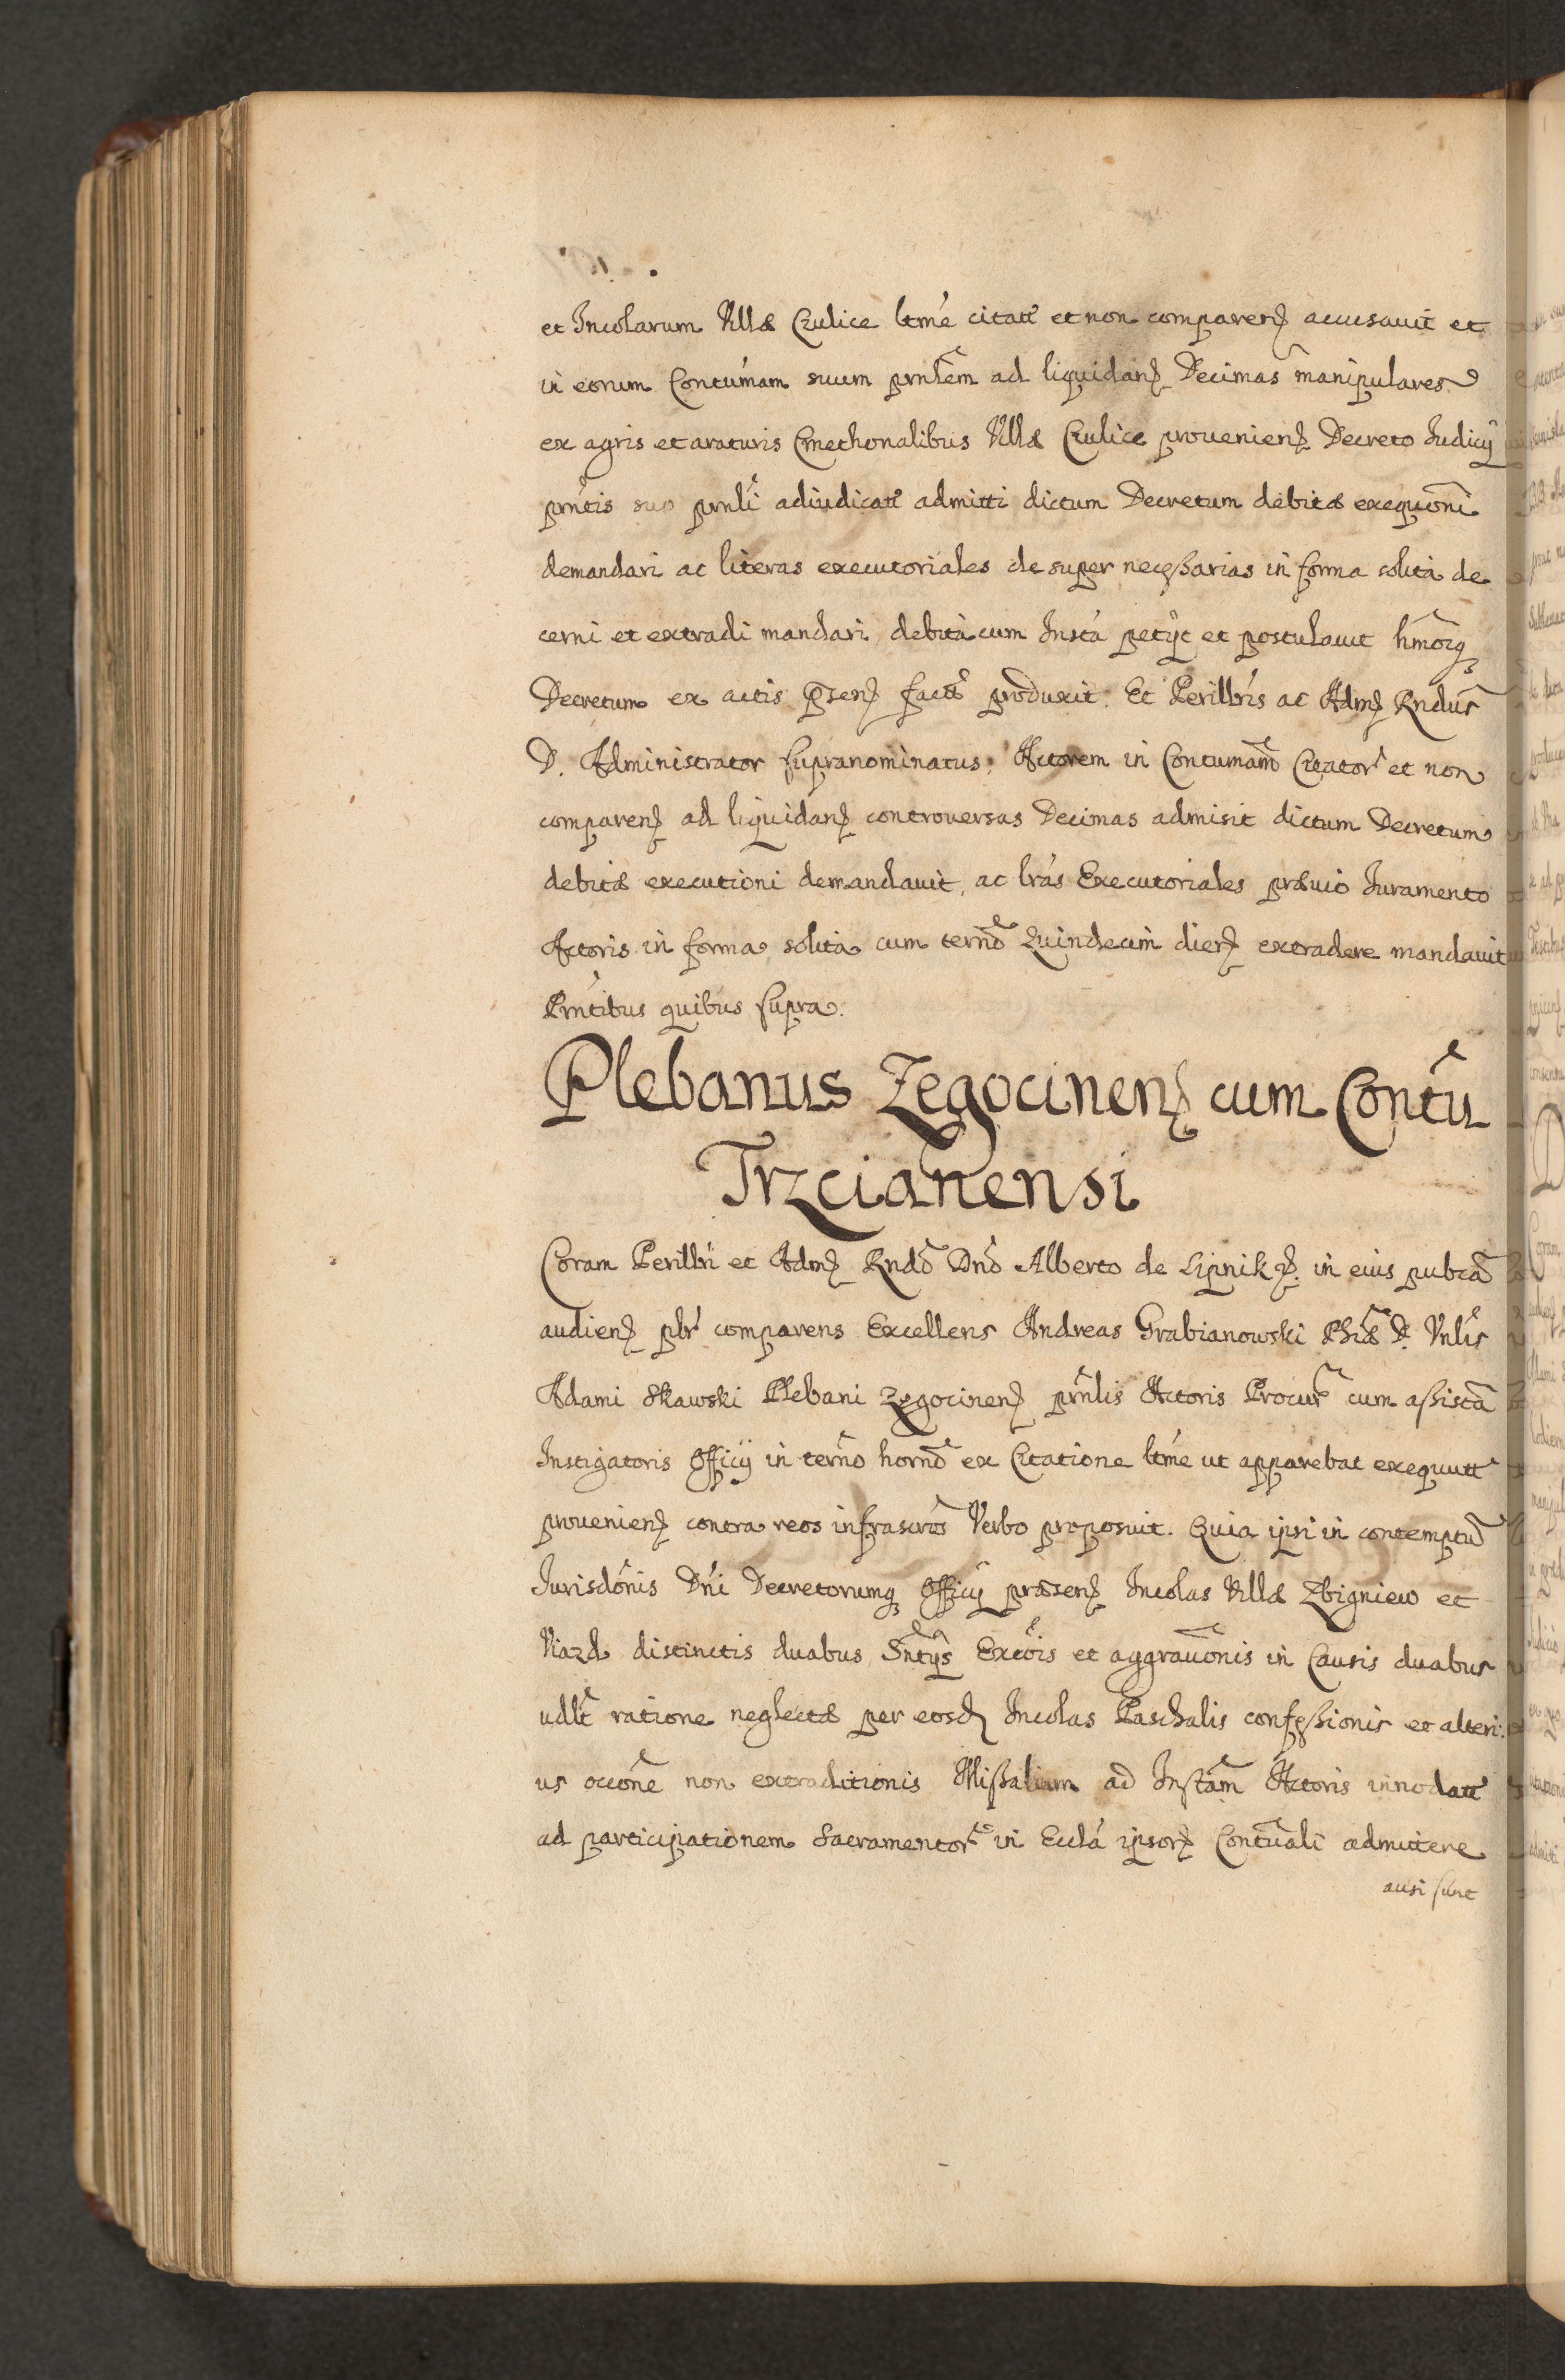 et Incolarum Villæ Czulice ltmé citatt et non comparenꝫ accusauit et
in eorum Contúmam suum prnlem ad liquidanꝫ Decimas manipulares
ex agris et araturis Cmethonalibus Villæ Czulice prouenienꝫ Decreto Iudicij
pntis suo prnli adiudicatt admitti dictum Decretum debitæ exequõni
demandari ac literas executoriales de super necessarias in forma solita de
cerni et extradi mandari debita cum Instá petijt et postulauit hmõiqꝫ
Decretum ex actis p̃senꝫ factt produxit. Et Perillris ac Admꝫ Rndus
D. Administrator supranominatus, Actorem in Contumam̃ Citator et non
comparenꝫ ad liquidanꝫ controuersas Decimas admisit dictum Decretum
debitæ executioni demandauit, ac lrás Executoriales præuio Iuramento
Actoris in forma solita cum termo Quindecim dierꝫ extradere mandauit
Pntibus quibus supra.
Plebanus Zegocinenꝫ cum Contũ
Trzcianensi
Coram Perillri et Admꝫ Rndo Dno Alberto de Lipnik ꝫ. in eius pubca
audienꝫ plr comparens Excellens Andreas Grabianowski Phiæ D. Vnlis
Adami Skawski Plebani Zegocinenꝫ prnlis Actoris Procur cum assista
Instigatoris Officij in termo horno ex Citatione ltmé ut apparebat exequutt
prouenienꝫ contra reos infrascros Verbo proposuit. Quia ipsi in contemptũ
Iurisdõnis Dni Decretorumqꝫ Officij præsenꝫ Incolas Villæ Zbigniew et
Viazd distinctis duabus Sntijs Excõis et aggrauõnis in Causis duabus
udlt ratione neglectæ per eosdꝫ Incolas Paschalis confessionis et alteri:
us occõne non extraditionis Missalium ad Instam Actoris innodatt
ad participationem Sacramentor in Ecclá ipsorꝫ Contuali admittere
ausi sunt